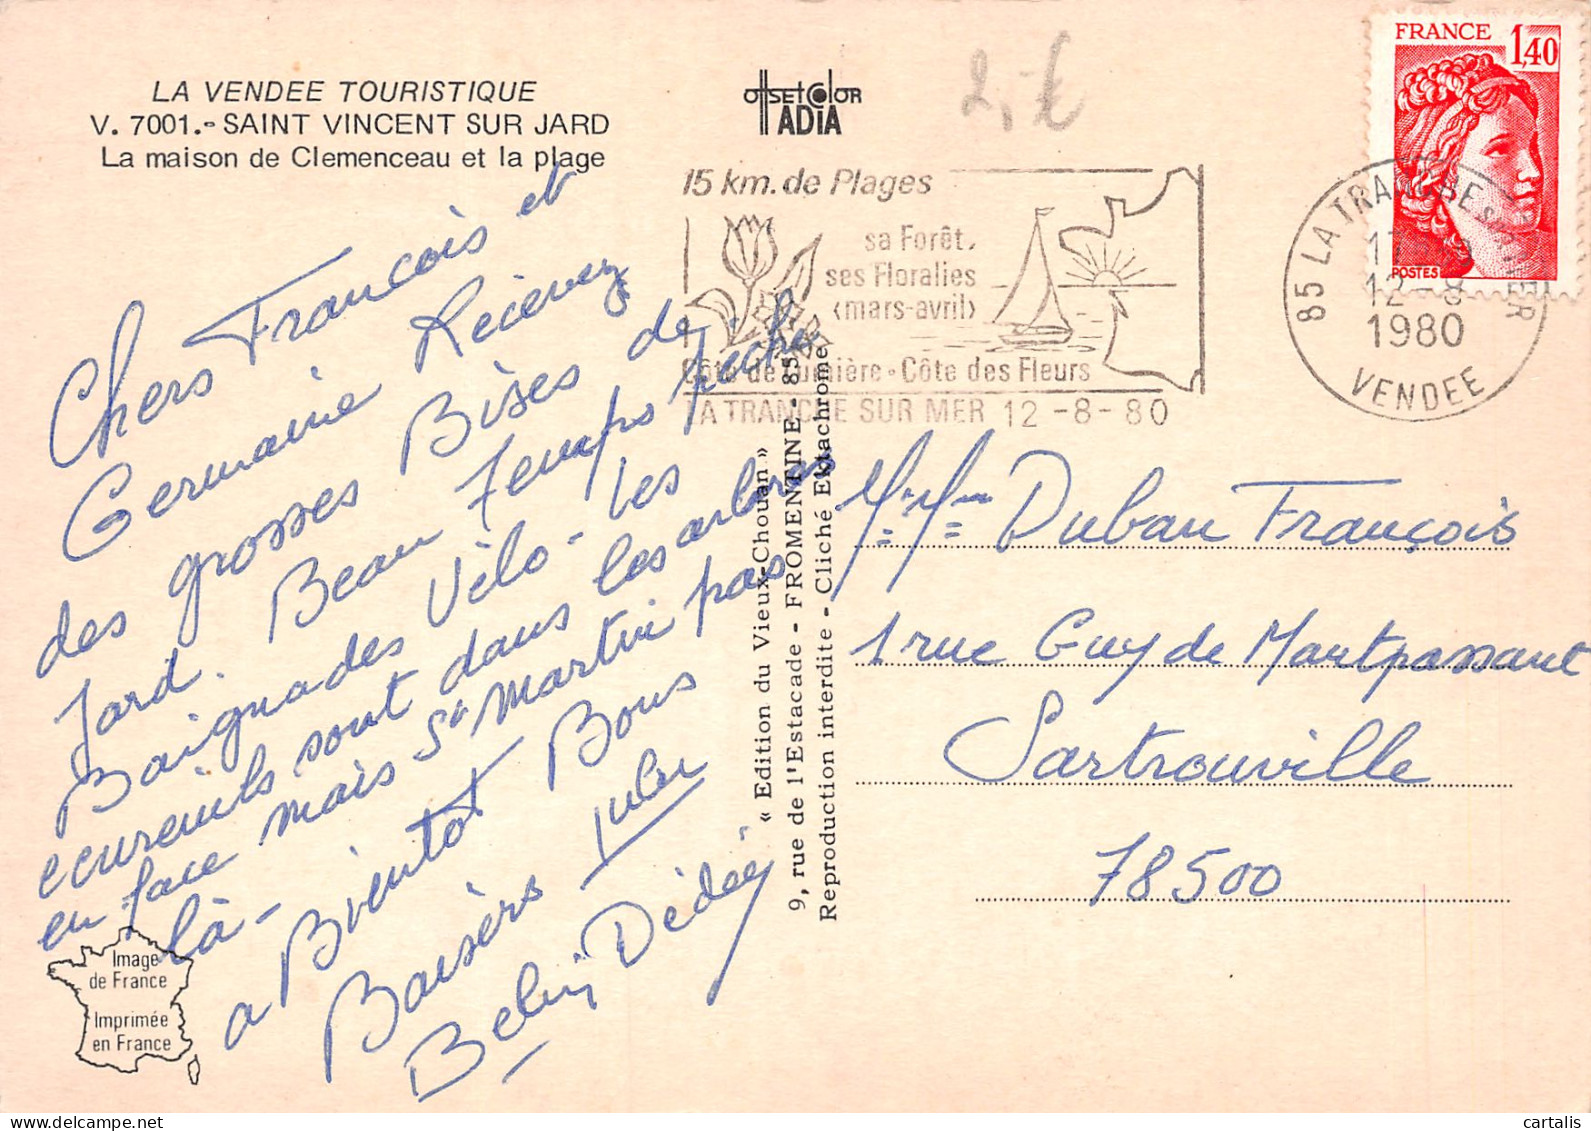 LA VENDEE TOURISTIQUE
V. 7001.- SAINT VINCENT SUR JARD
La maison de Clemenceau et la plage
Chers François et
Germaine Recevez
des grosses Bises de
Jard. Beau Temps Pêche
Baignades Vélo - Les
ecureuils sont dans les arbres
en face mais St Martin pas
là -
a Bientot Bons
Baisers
Dédée
offsetcolor
ADIA
2,- €
FRANCE 1,40
POSTES
15 km. de Plages
sa Forêt,
ses Floralies
(mars-avril)
Côte de Lumière - Côte des Fleurs
LA TRANCHE SUR MER 12 -8- 80
85 LA TRANCHE S/ MER
17
12-8
1980
VENDEE
« Edition du Vieux-Chouan »
9, rue de l'Estacade - FROMENTINE - 85
Reproduction interdite - Cliché Ektachrome
Mr Mme Duban François
1 rue Guy de Mautpassant
Sartrouville
78500
Image
de France
Imprimée
en France
cartalis
www.delcampe.net